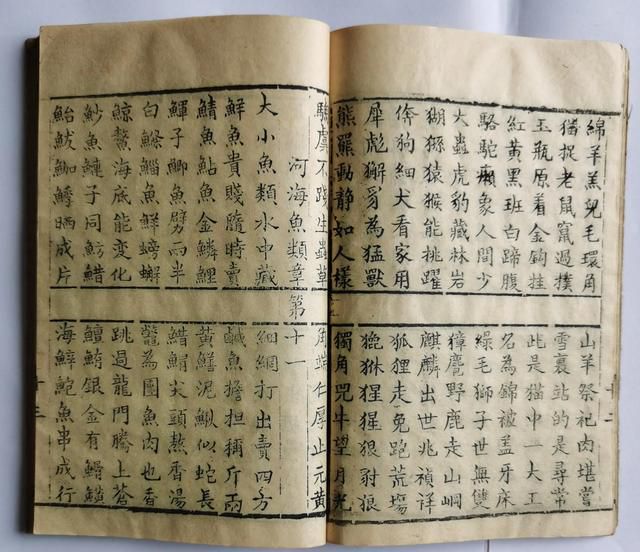 綿羊羔兒毛環角 山羊祭祀肉堪嘗
猫捉老鼠竄過撲 雪裏站的是尋常
玉瓶原看金鈎挂 此是猫中一大王
紅黃黑班白蹄腹 名為錦被盖牙床
駱駝象人間少 綠毛獅子世無雙
大蟲虎豹藏林岩 獐麂野鹿走山峒
猢猻猿猴能挑躍 麒麟出世兆禎祥
狗細犬看家用 狐狸走兔跑荒塲
犀彪獬豸為猛獸 猩猩狼豺狼
熊羆動静如人樣 獨角兕牛望月光
騶虞不踐生蟲草 角端仁厚止元黃
河海魚類章第十一
大小魚類水中藏 細網打出賣四方
鮮魚貴賤隨時賣 鹹魚擔担稱斤兩
鯖魚鮎魚金鱗鯉 黃鱔泥鰍似蛇長
鯶子鯽魚劈兩半 尖頭熬香湯
白鰷鯔魚鮮螃蠏 鱉為團魚肉也香
鯨鰲海底能變化 跳過龍門騰上蒼
魦魚鰱子同魴 銀金有
鮐鮁鱘晒成片 海鮑魚串成行
十二
十三